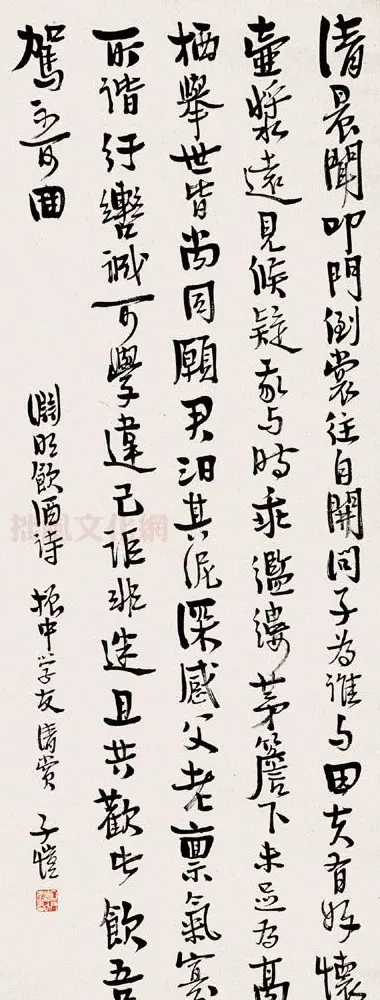 清晨聞叩門倒裳往自開問子為誰与田夫有好懷
壺漿遠見候疑我与時乖襤縷茅簷下未足為高
栖舉世皆尚同願君汩其泥深感父老稟氣寡
所諧紆轡誠可學違己詎非迷且共歡此飲吾
駕不可囬
淵明飲酒詩 振中学友清賞 子愷
拙風文化網